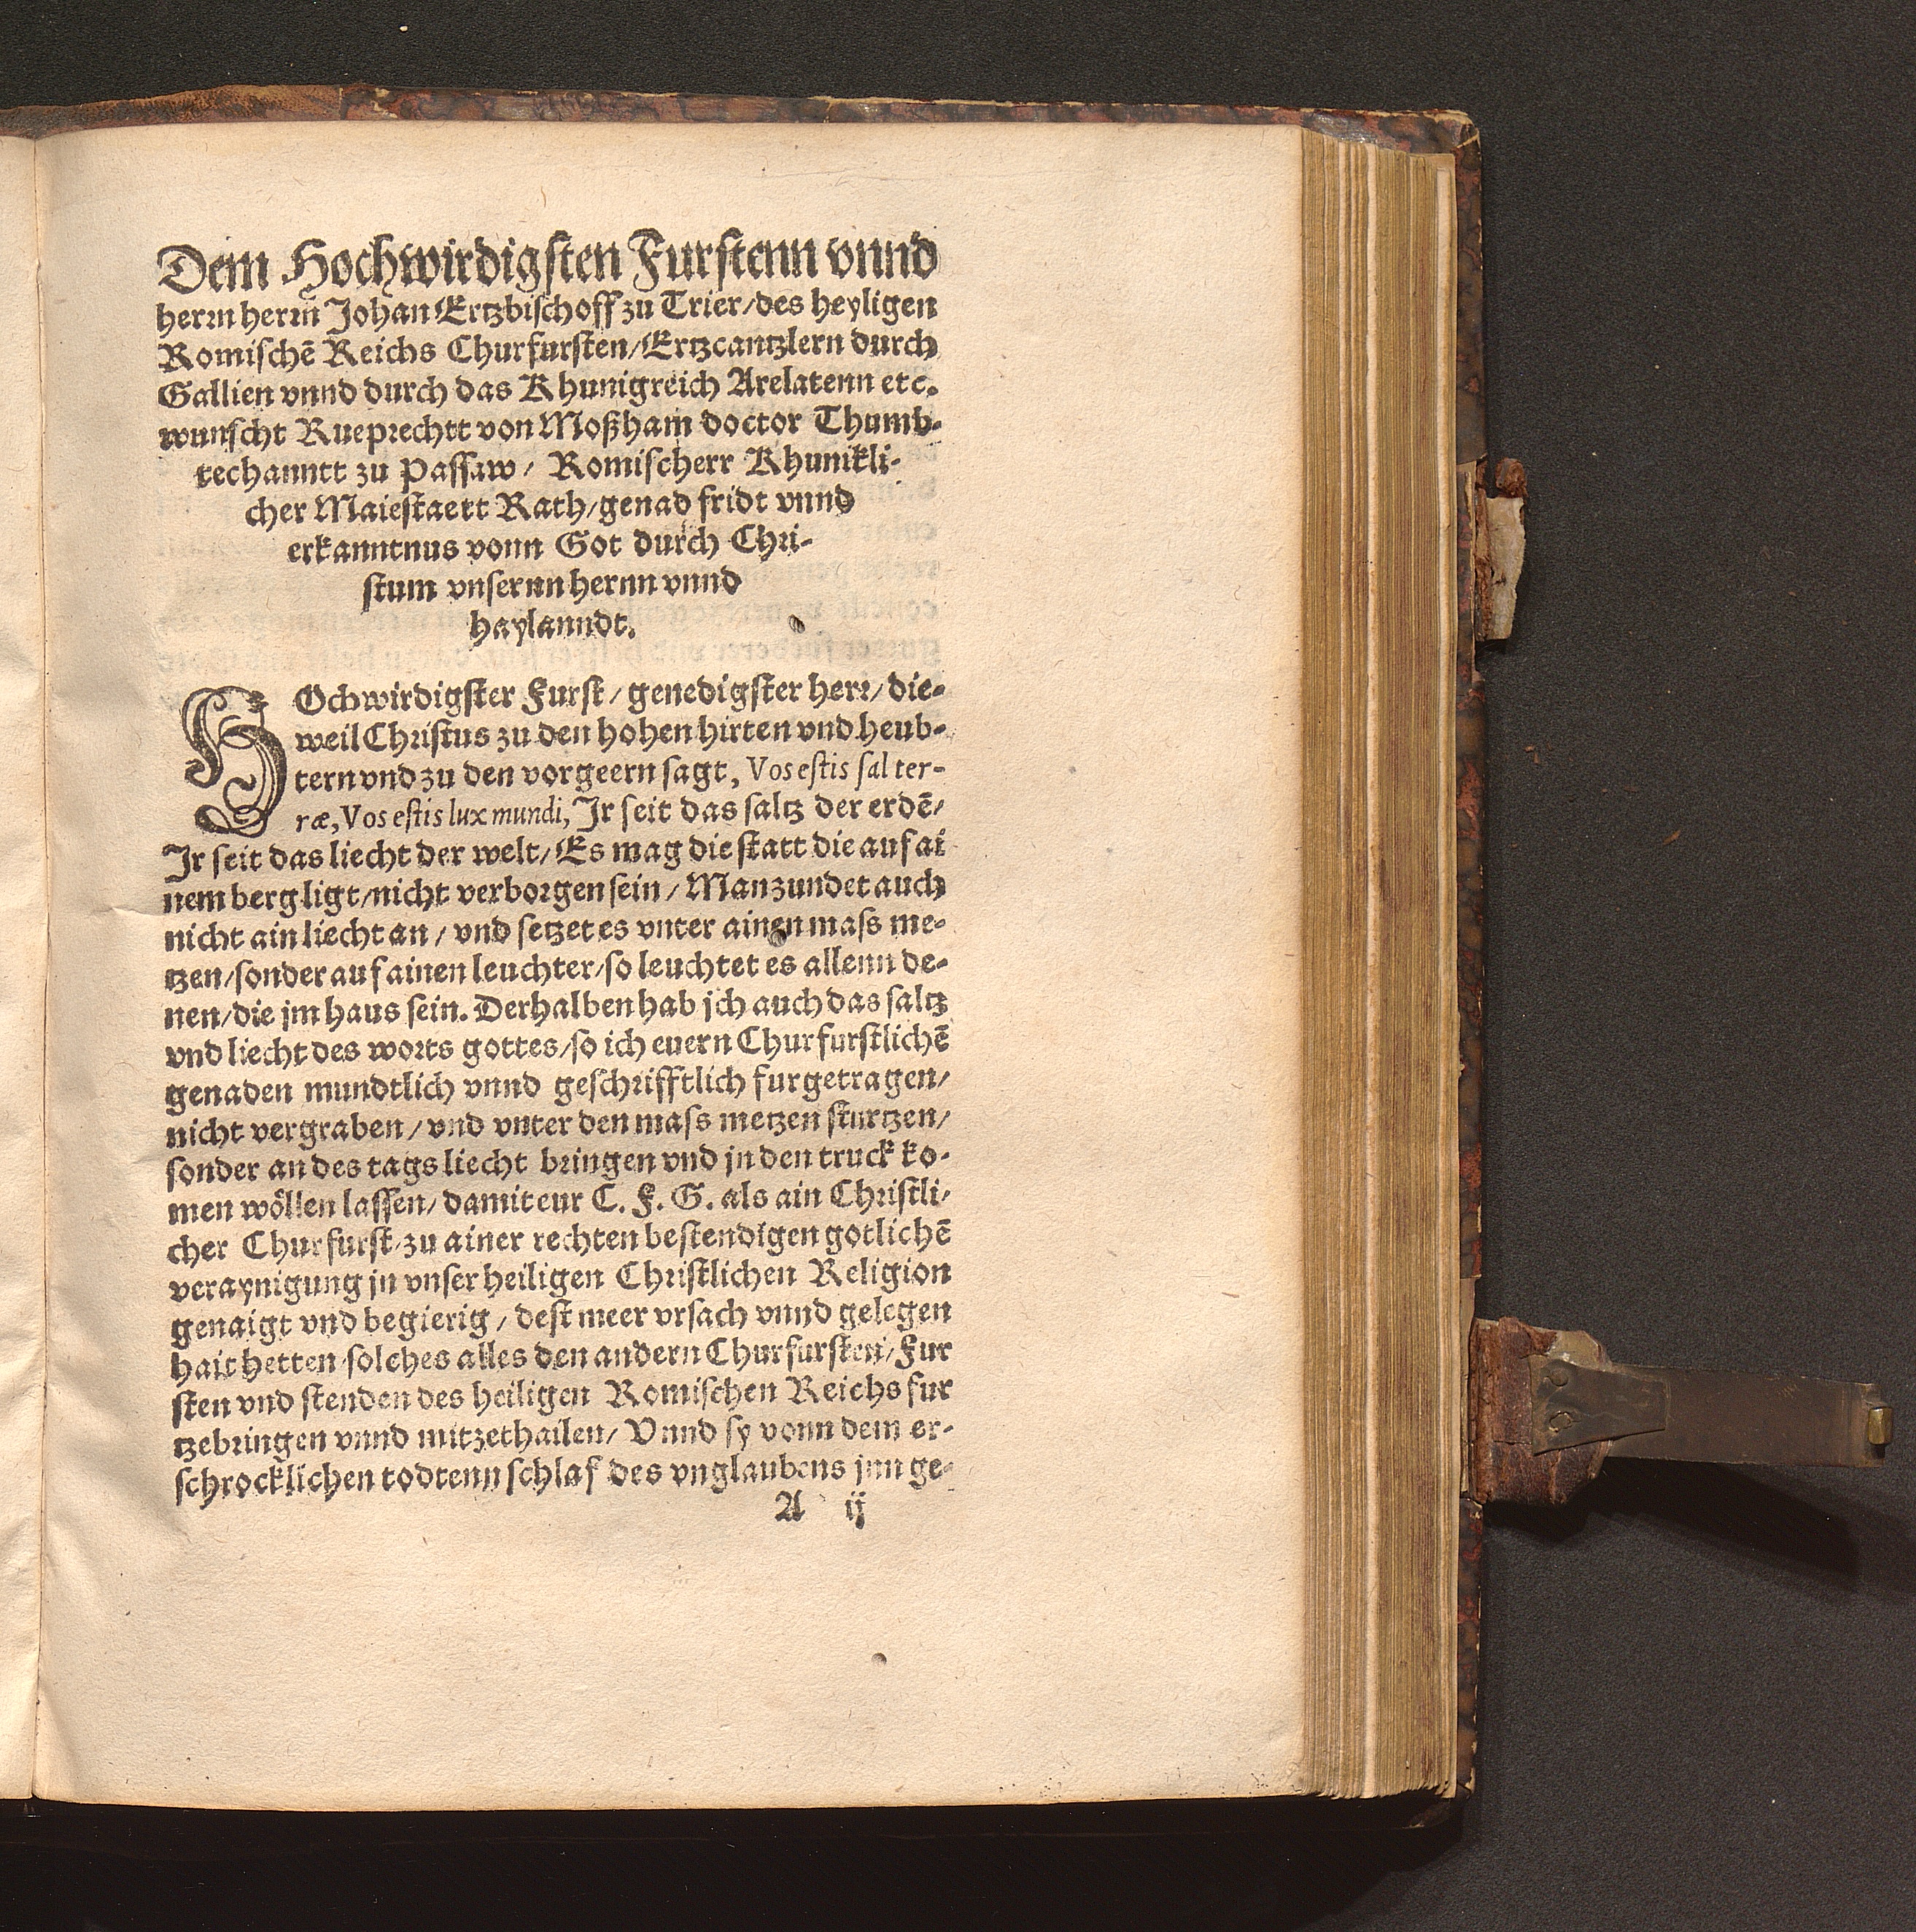 Dem Hochwirdigsten Furstenn vnnd
herrn herrn Johan Ertzbischoff zu Trier/des heyligen
Romischē Reichs Churfursten/Ertzcantzlern durch
Gallien vnnd durch das Khunigreich Arelatenn etc.
wunscht Rueprechtt von Moßham doctor Thumb-
techanntt zu Passaw/ Romischerr Khunikli-
cher Maiestaett Rath/genad fridt vnnd
erkanntnus vonn Got durch Chri-
stum vnsernn hernn vnnd
haylanndt.
HOchwirdigster Furst/genedigster herr/die-
weil Christus zu den hohen hirten vnd heub-
tern vnd zu den vorgeern sagt, Vos estis sal ter-
ræ, Vos estis lux mundi, Jr seit das saltz der erdē/
Jr seit das liecht der welt/Es mag die statt die auf ai
nem berg ligt/nicht verborgen sein/Man zundet auch
nicht ain liecht an/vnd setzet es vnter ainen mass me-
tzen/sonder auf ainen leuchter/so leuchtet es allenn de-
nen/die jm haus sein. Derhalben hab jch auch das saltz
vnd liecht des worts gottes/so ich euern Churfurstlichē
genaden mundtlich vnnd geschrifftlich furgetragen/
nicht vergraben/vnd vnter den mass metzen sturtzen/
sonder an des tags liecht bringen vnd jn den truck ko-
men wöllen lassen/damit eur C. F. G. als ain Christli-
cher Churfurst/zu ainer rechten bestendigen gotlichē
veraynigung jn vnser heiligen Christlichen Religion
genaigt vnd begierig/dest meer vrsach vnnd gelegen
hait hetten solches alles den andern Churfursten/Fur
sten vnd stenden des heiligen Romischen Reichs fur
tzebringen vnnd mitzethailen/Vnnd sy vonn dem er-
schrocklichen todtenn schlaf des vnglaubens jnn ge-
A ij